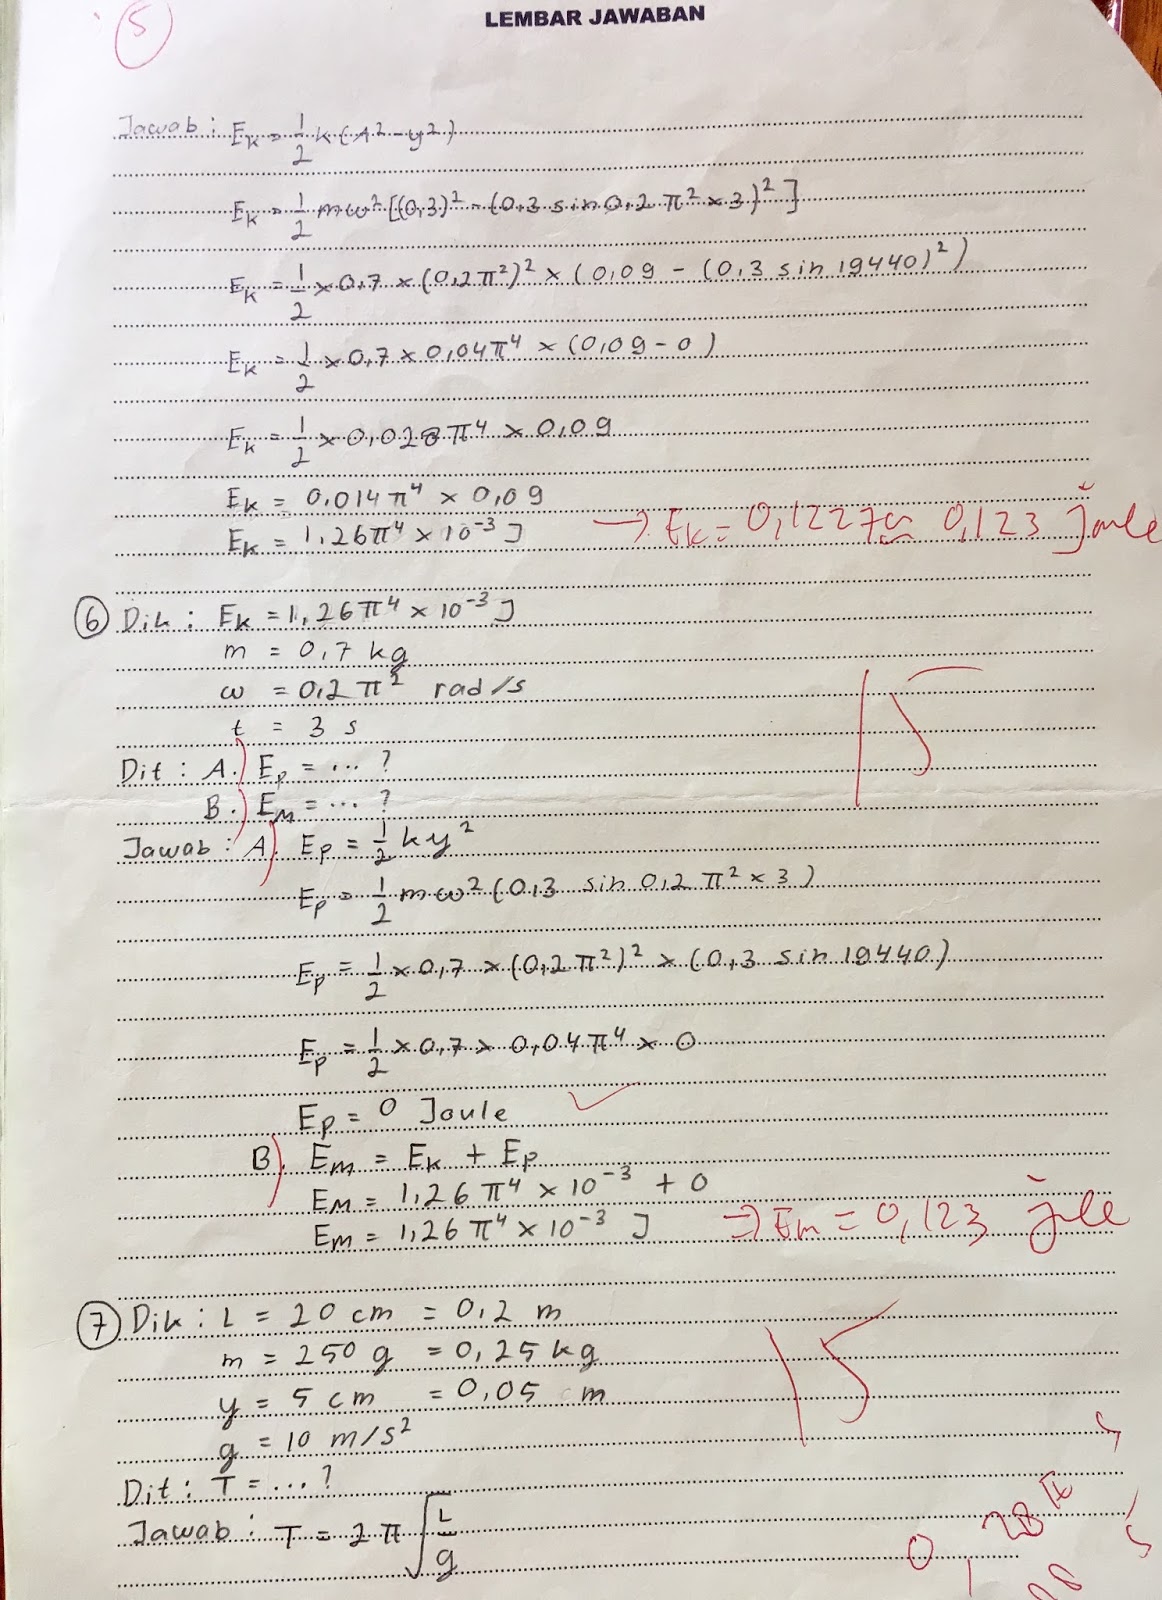 LEMBAR JAWABAN
5
Jawab : Ek = 1/2 k (A² - y²)
Ek = 1/2 mω² [(0,3)² - (0,3 sin 0,2 π² × 3)²]
Ek = 1/2 × 0,7 × (0,2π²)² × (0,09 - (0,3 sin 19440)²)
Ek = 1/2 × 0,7 × 0,04π⁴ × (0,09 - 0)
Ek = 1/2 × 0,028π⁴ × 0,09
Ek = 0,014π⁴ × 0,09
Ek = 1,26π⁴ × 10⁻³ J → Ek = 0,1227 ≈ 0,123 Joule
6 Dik : Ek = 1,26π⁴ × 10⁻³ J
m = 0,7 kg
ω = 0,2 π² rad/s
t = 3 s
15
Dit : A.) Ep = ... ?
B.) Em = ... ?
Jawab : A) Ep = 1/2 ky²
Ep = 1/2 mω² (0,3 sin 0,2 π² × 3)
Ep = 1/2 × 0,7 × (0,2π²)² × (0,3 sin 19440)
Ep = 1/2 × 0,7 × 0,04π⁴ × 0
Ep = 0 Joule ✓
B). Em = Ek + Ep
Em = 1,26π⁴ × 10⁻³ + 0
Em = 1,26π⁴ × 10⁻³ J ⇒ Em = 0,123 jule
7 Dik : L = 20 cm = 0,2 m
m = 250 g = 0,25 kg
y = 5 cm = 0,05 m
g = 10 m/s²
15
Dit : T = ... ?
Jawab : T = 2π √L/g